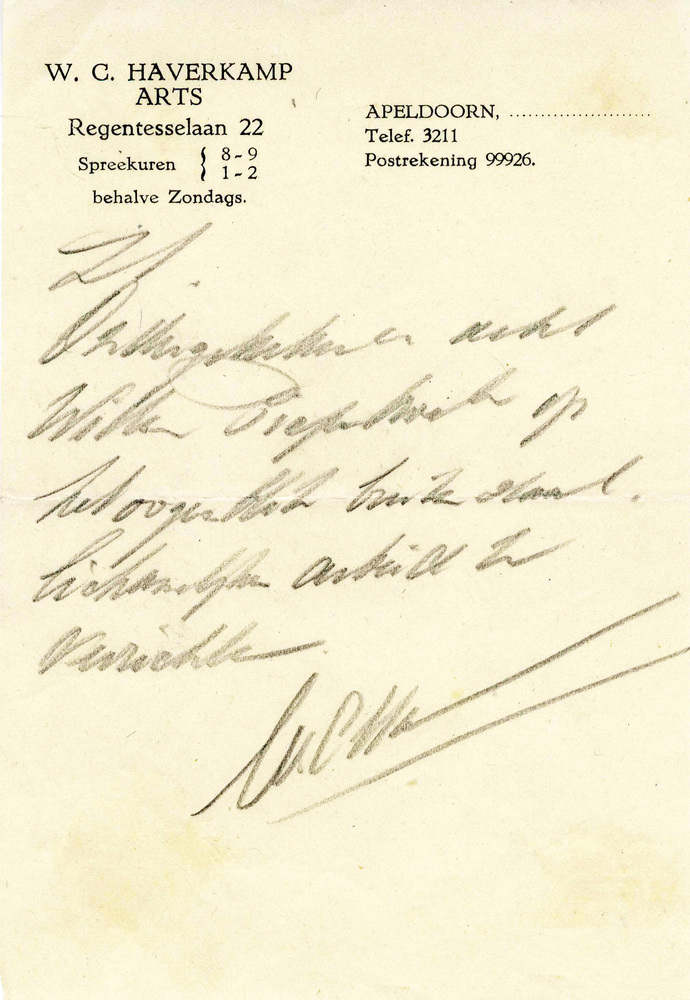 W. C. HAVERKAMP
ARTS
Regentesselaan 22
Spreekuren { 8-9
1-2
behalve Zondags.
APELDOORN, ........................
Telef. 3211
Postrekening 99926.
L.S.
Ondergetekende acht
Willem op
het oogenblik buiten staat
lichamelijke arbeid te
verrichten